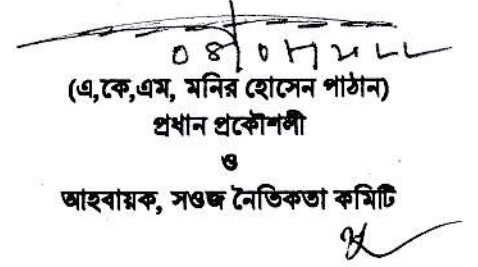 (এ,কে,এম, মনির হোসেন পাঠান)
প্রধান প্রকৌশলী
ও
আহবায়ক, সওজ নৈতিকতা কমিটি